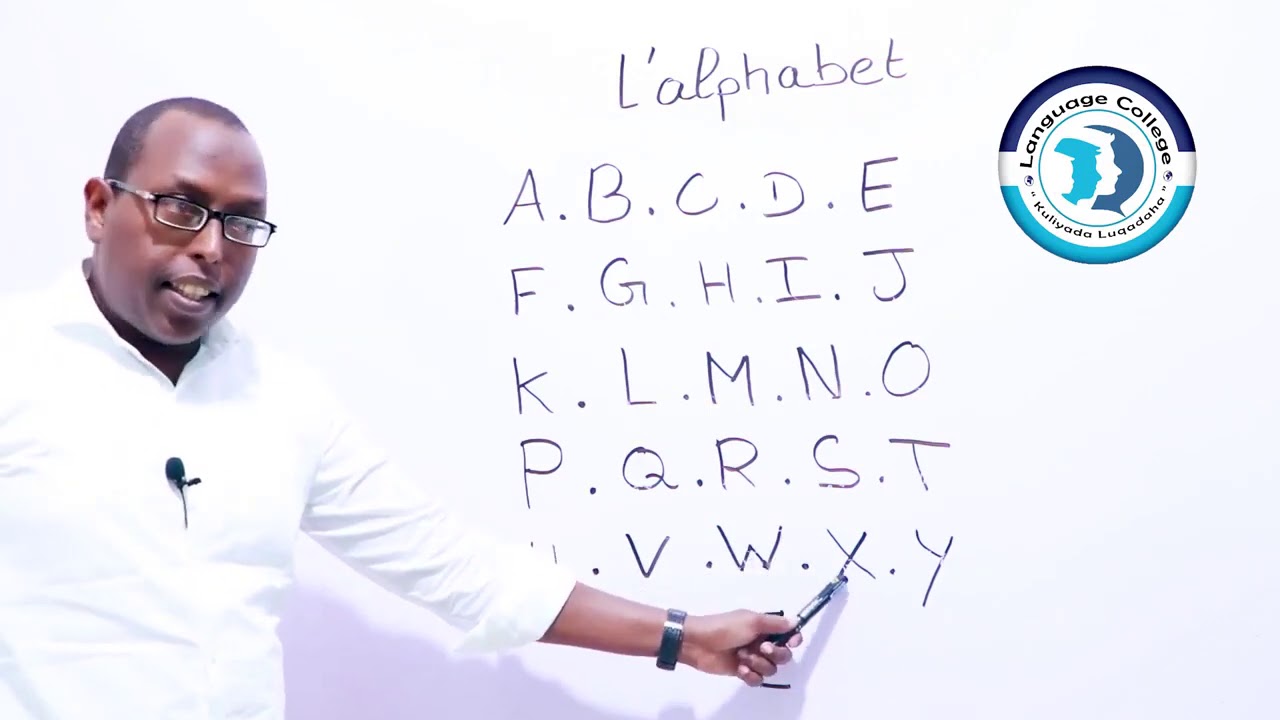 L'alphabet
A . B . C . D . E
F . G . H . I . J
K . L . M . N . O
P . Q . R . S . T
. V . W . X . Y
Language College
" Kuliyada Luqadaha "